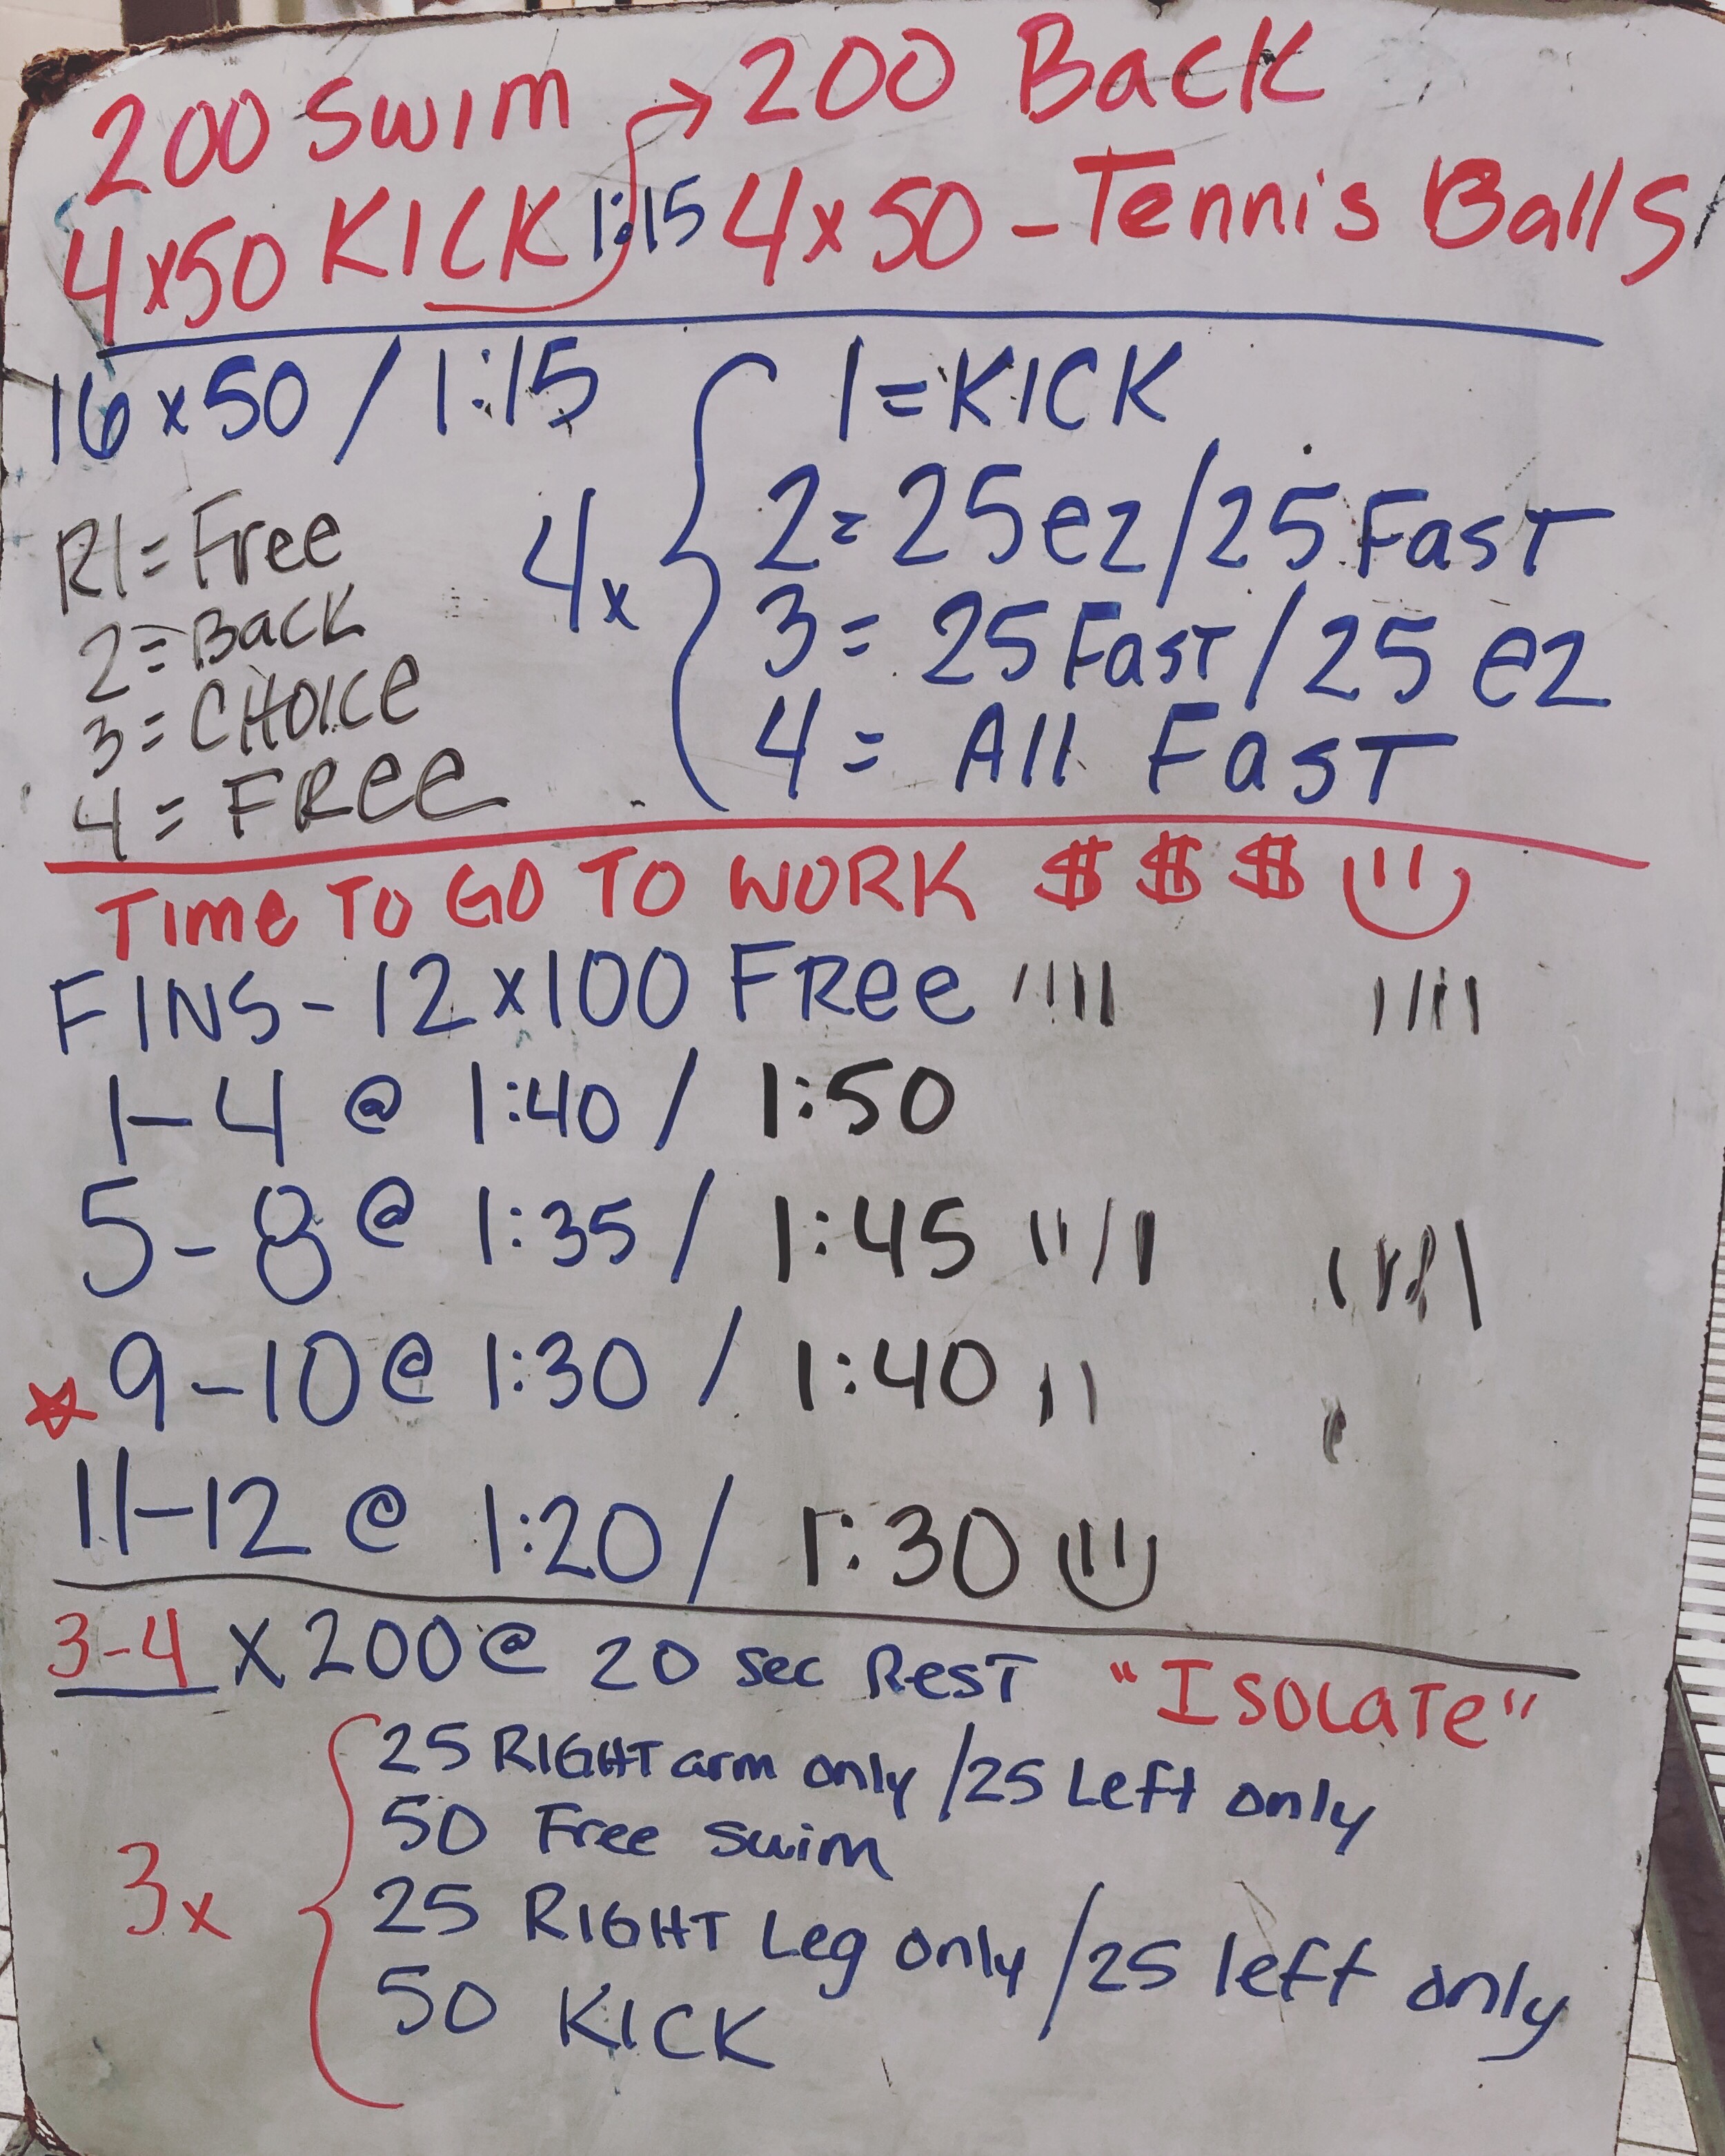 200 Swim → 200 Back
4x50 KICK 1:15 4x50 - Tennis Balls
16x50 / 1:15
R1 = Free
2 = Back
3 = CHOICE
4 = FREE
4x
1 = KICK
2 = 25 ez / 25 Fast
3 = 25 Fast / 25 ez
4 = All Fast
Time TO GO TO WORK $ $ $
FINS - 12 x 100 FRee
1-4 @ 1:40 / 1:50
5-8 @ 1:35 / 1:45
9-10 @ 1:30 / 1:40
11-12 @ 1:20 / 1:30
3-4 x 200 @ 20 sec Rest "ISOLATe"
3x
25 RIGHT arm only / 25 Left only
50 Free swim
25 RIGHT Leg only / 25 left only
50 KICK